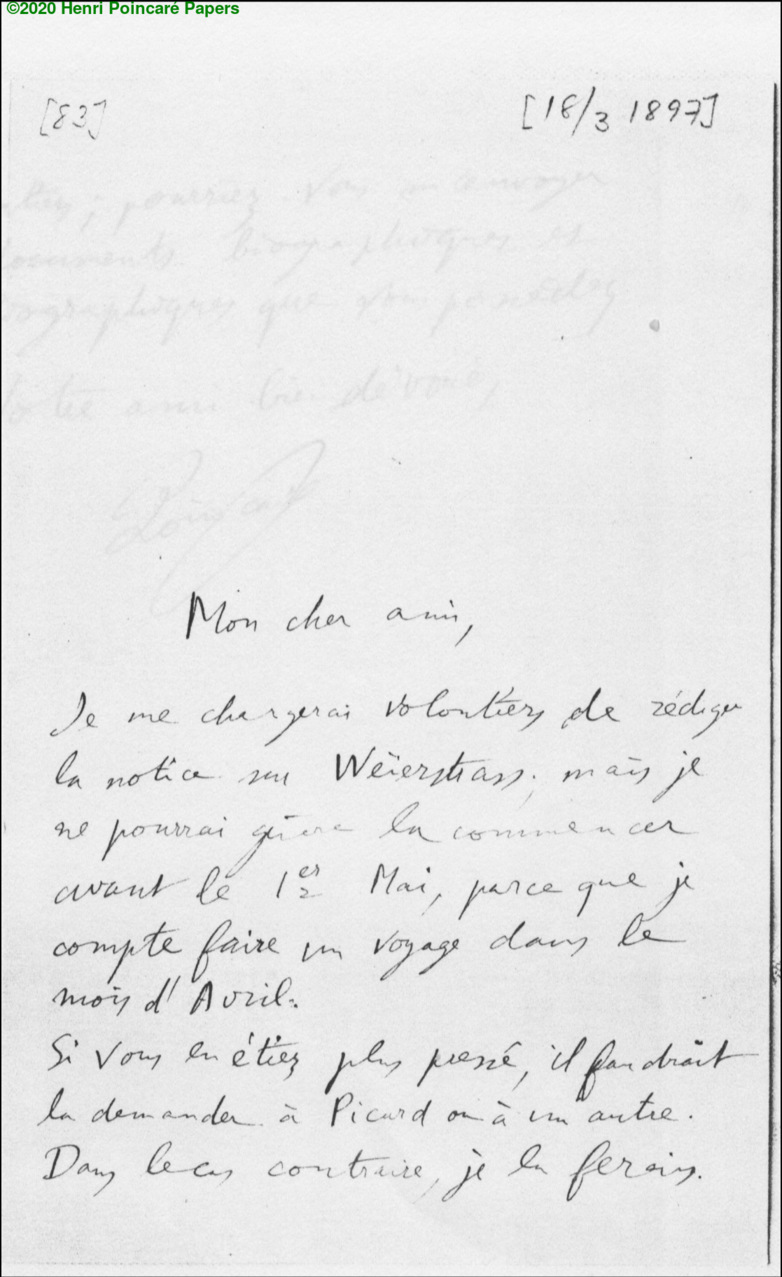 ©2020 Henri Poincaré Papers
[83]
[18/3 1897]
pourriez-vous m'envoyer
documents biographiques et
que vous possédez
Votre ami bien dévoué,
Poincaré
Mon cher ami,
Je me chargerai volontiers de rédiger
la notice sur Weierstrass; mais je
ne pourrai guère la commencer
avant le 1er Mai, parce que je
compte faire un voyage dans le
mois d'Avril.
Si vous en étiez plus pressé, il faudrait
la demander à Picard ou à un autre.
Dans le cas contraire, je la ferais.